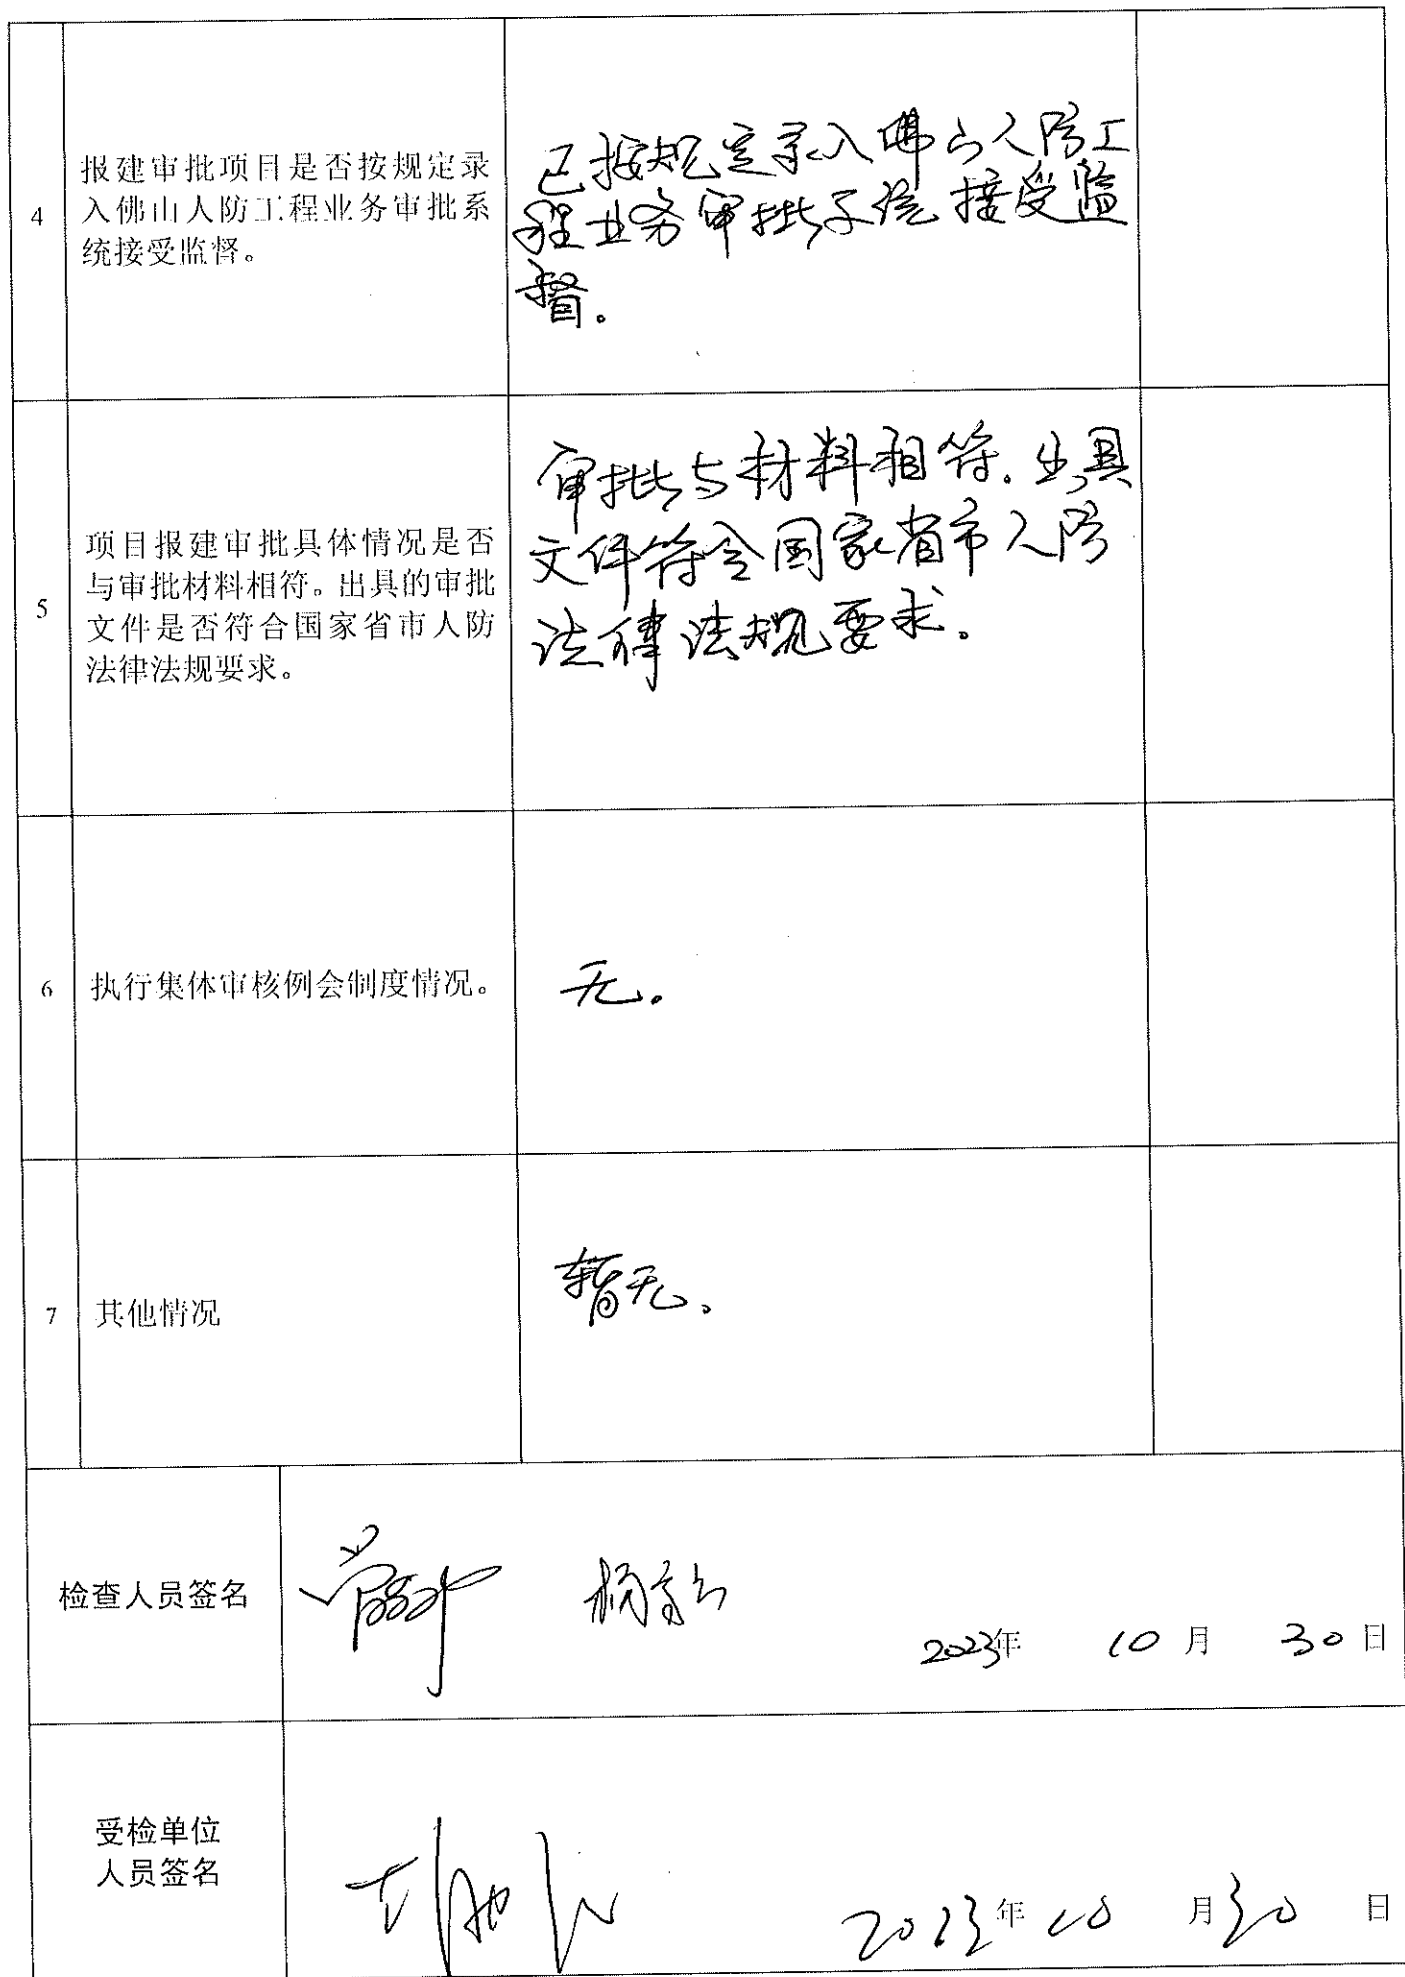 4
报建审批项目是否按规定录
入佛山人防工程业务审批系
统接受监督。
已按规定录入佛山人防工
程业务审批系统接受监
督。
5
项目报建审批具体情况是否
与审批材料相符。出具的审批
文件是否符合国家省市人防
法律法规要求。
审批与材料相符.出具
文件符合国家省市人防
法律法规要求。
6
执行集体审核例会制度情况。
无。
7
其他情况
暂无。
检查人员签名
2023年 10月 30日
受检单位
人员签名
2023年10月30日